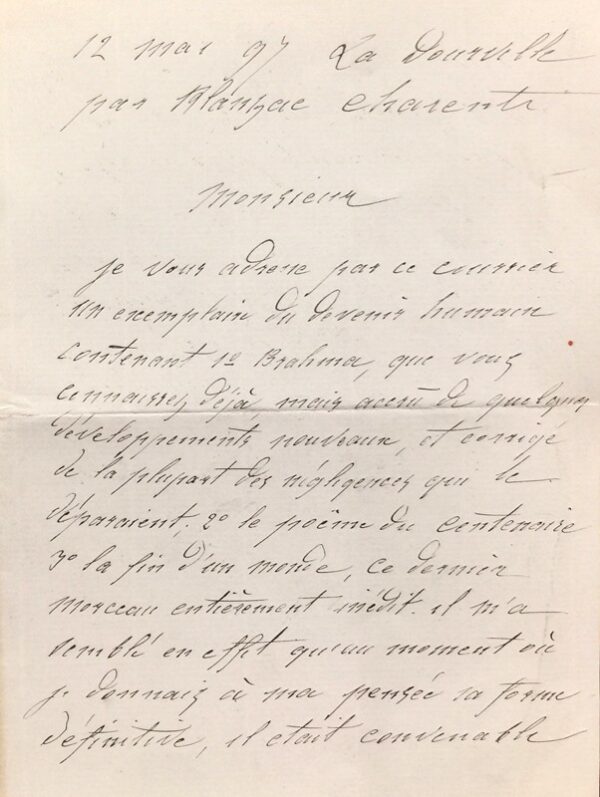 12 mai 97 La Dourville
par Blanzac Charente
Monsieur
je vous adresse par ce courrier
un exemplaire du devenir humain
contenant 1º Brahma, que vous
connaissez déjà, mais accru de quelques
développements nouveaux, et corrigé
de la plupart des négligences qui le
déparaient; 2º le poëme du centenaire
3º la fin d'un monde, ce dernier
morceau entièrement inédit. il m'a
semblé en effet qu'au moment où
je donnais à ma pensée sa forme
définitive, il était convenable